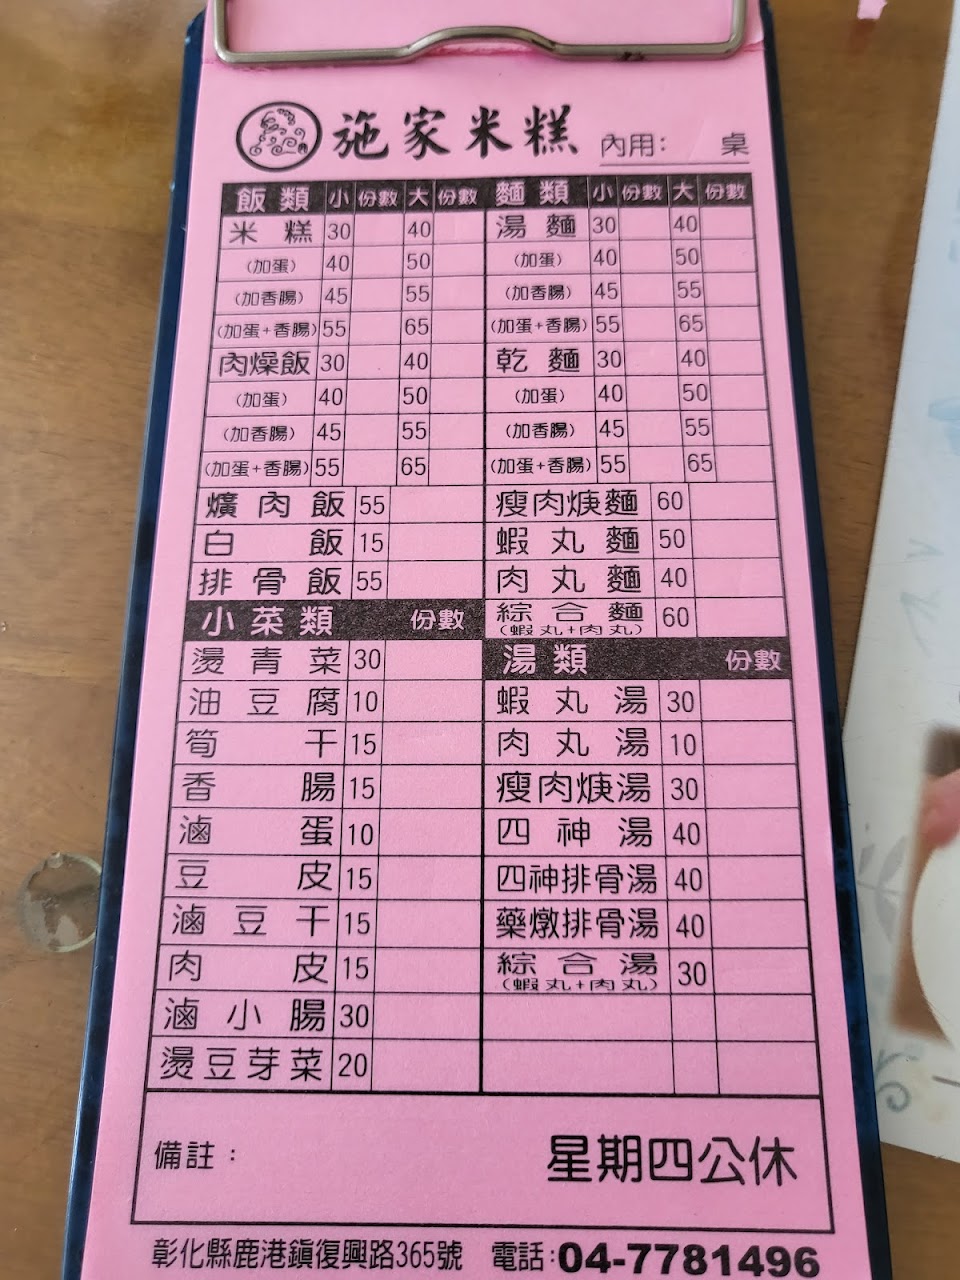 施家米糕 內用： 桌
飯類 小 份數 大 份數
米糕 30 40
(加蛋) 40 50
(加香腸) 45 55
(加蛋+香腸) 55 65
肉燥飯 30 40
(加蛋) 40 50
(加香腸) 45 55
(加蛋+香腸) 55 65
爌肉飯 55
白飯 15
排骨飯 55
小菜類 份數
燙青菜 30
油豆腐 10
筍干 15
香腸 15
滷蛋 10
豆皮 15
滷豆干 15
肉皮 15
滷小腸 30
燙豆芽菜 20
麵類 小 份數 大 份數
湯麵 30 40
(加蛋) 40 50
(加香腸) 45 55
(加蛋+香腸) 55 65
乾麵 30 40
(加蛋) 40 50
(加香腸) 45 55
(加蛋+香腸) 55 65
瘦肉焿麵 60
蝦丸麵 50
肉丸麵 40
綜合麵 60
(蝦丸+肉丸)
湯類 份數
蝦丸湯 30
肉丸湯 10
瘦肉焿湯 30
四神湯 40
四神排骨湯 40
藥燉排骨湯 40
綜合湯 30
(蝦丸+肉丸)
備註：
星期四公休
彰化縣鹿港鎮復興路365號 電話:04-7781496